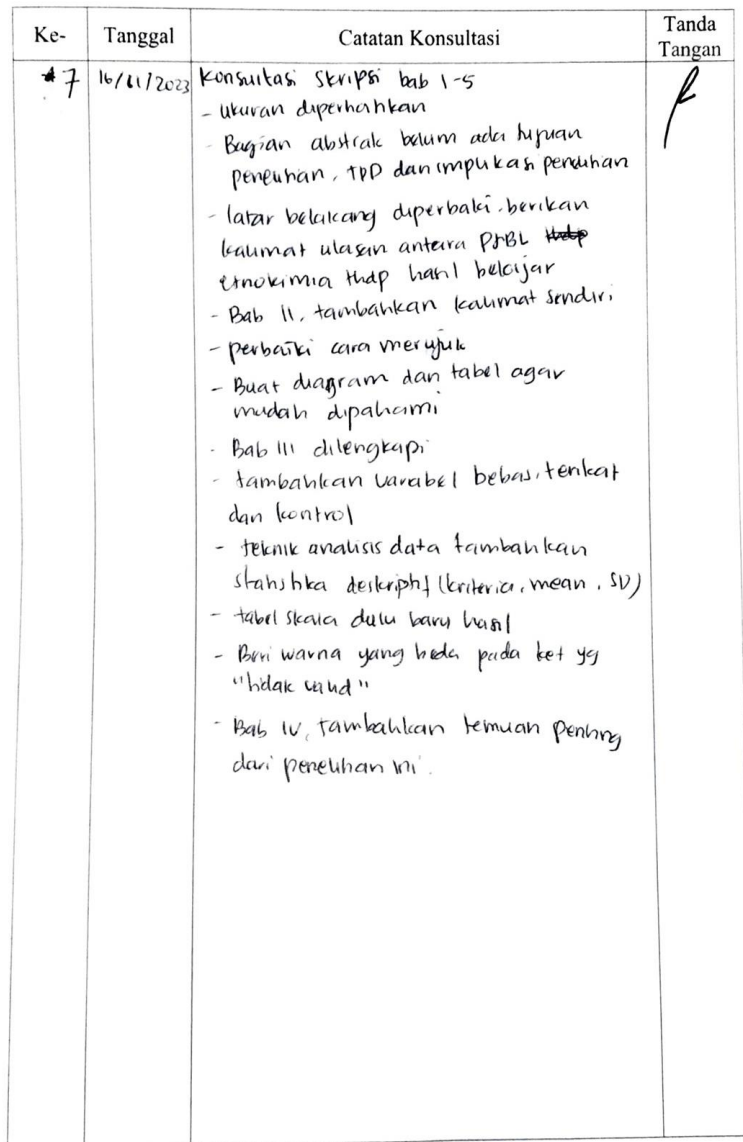 Ke-
Tanggal
Catatan Konsultasi
Tanda
Tangan
7
16/11/2023
Konsultasi Skripsi bab 1-5
- ukuran diperhatikan
- Bagian abstrak belum ada tujuan
penelitian, TPD dan implikasi penelitian
- latar belakang diperbaki. berikan
kalimat ulasan antara PjBL
etnokimia thdp hasil belajar
- Bab II, tambahkan kalimat sendiri
- perbaiki cara merujuk
- Buat diagram dan tabel agar
mudah dipahami
- Bab III dilengkapi
- tambahkan variabel bebas, terikat
dan kontrol
- teknik analisis data tambahkan
statistika deskriptif (kriteria, mean, SD)
- tabel skala dulu baru hasil
- Beri warna yang beda pada ket yg
"tidak valid"
- Bab IV, tambahkan temuan penting
dari penelitian ini.